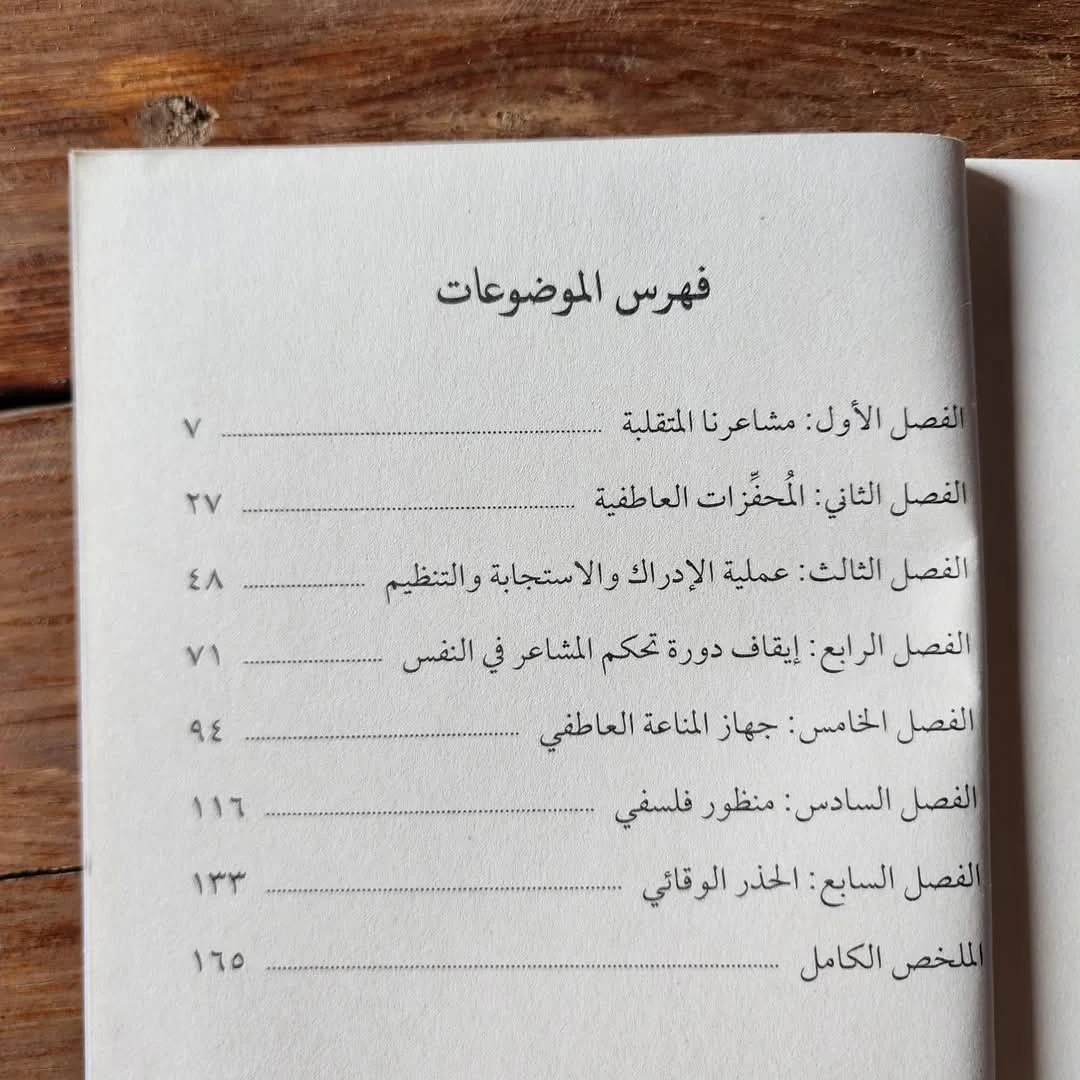 فهرس الموضوعات
الفصل الأول: مشاعرنا المتقلبة ........ ٧
الفصل الثاني: المُحفِّزات العاطفية ........ ٢٧
الفصل الثالث: عملية الإدراك والاستجابة والتنظيم ........ ٤٨
الفصل الرابع: إيقاف دورة تحكم المشاعر في النفس ........ ٧١
الفصل الخامس: جهاز المناعة العاطفي ........ ٩٤
الفصل السادس: منظور فلسفي ........ ١١٦
الفصل السابع: الحذر الوقائي ........ ١٣٣
الملخص الكامل ........ ١٦٥